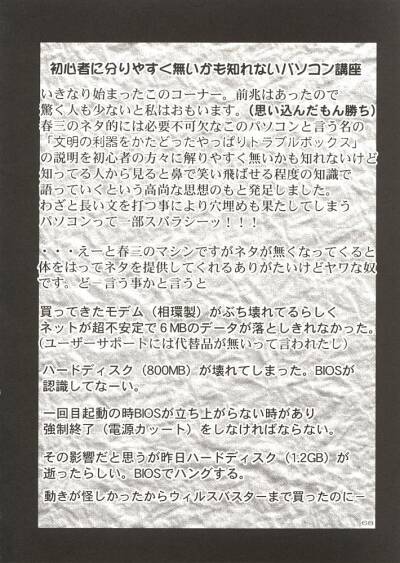 初心者に分りやすく無いかも知れないパソコン講座
いきなり始まったこのコーナー。前兆はあったので
驚く人も少ないと私はおもいます。（思い込んだもん勝ち）
春三のネタ的には必要不可欠なこのパソコンと言う名の
「文明の利器をかたどったやっぱりトラブルボックス」
の説明を初心者の方々に解りやすく無いかも知れないけど
知ってる人から見ると鼻で笑い飛ばせる程度の知識で
語っていくという高尚な思想のもと発足しました。
わざと長い文を打つ事により穴埋めも果たしてしまう
パソコンって一部スバラシーッ！！！
・・・えーと春三のマシンですがネタが無くなってくると
体をはってネタを提供してくれるありがたいけどヤワな奴
です。どー言う事かと言うと
買ってきたモデム（相環製）がぶち壊れてるらしく
ネットが超不安定で６MBのデータが落としきれなかった。
(ユーザーサポートには代替品が無いって言われたし)
ハードディスク（800MB）が壊れてしまった。BIOSが
認識してなーい。
一回目起動の時BIOSが立ち上がらない時があり
強制終了（電源カッート）をしなければならない。
その影響だと思うが昨日ハードディスク（1.2GB）が
逝ったらしい。BIOSでハングする。
動きが怪しかったからウィルスバスターまで買ったのにー
68